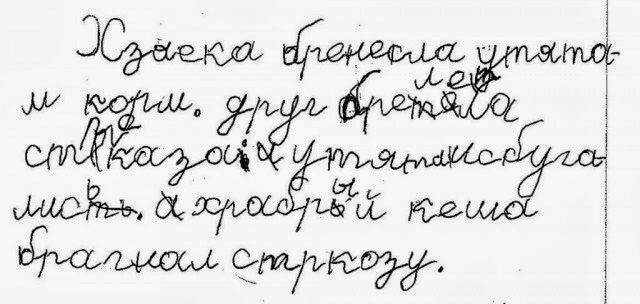 Хзяека бренесла утята-
м корм. друг бретела
стрказа а утятаисбуга
лись. а храбрый кеша
брагнал старкозу.